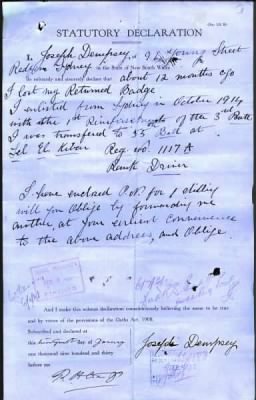 STATUTORY DECLARATION
I, Joseph Dempsey, of 96 Young Street
Redfern Sydney in the State of New South Wales
do solemnly and sincerely declare that about 12 months ago
I lost my Returned Badge.
I enlisted from Sydney in October 1914
with the 1st Reinforcements of the 3rd Batt
I was transfered to 55 Batt at
Tel El Kebir Reg No. 1117A
Rank Driver
I have enclosed P.N. for 1 shilling
will you Oblige by forwarding me
another, at your earliest Convenience
to the above address, and Oblige.
And I make this solemn declaration conscientiously believing the same to be true
and by virtue of the provisions of the Oaths Act, 1900.
Subscribed and declared at
this day of
one thousand nine hundred and thirty
before me
Joseph Dempsey